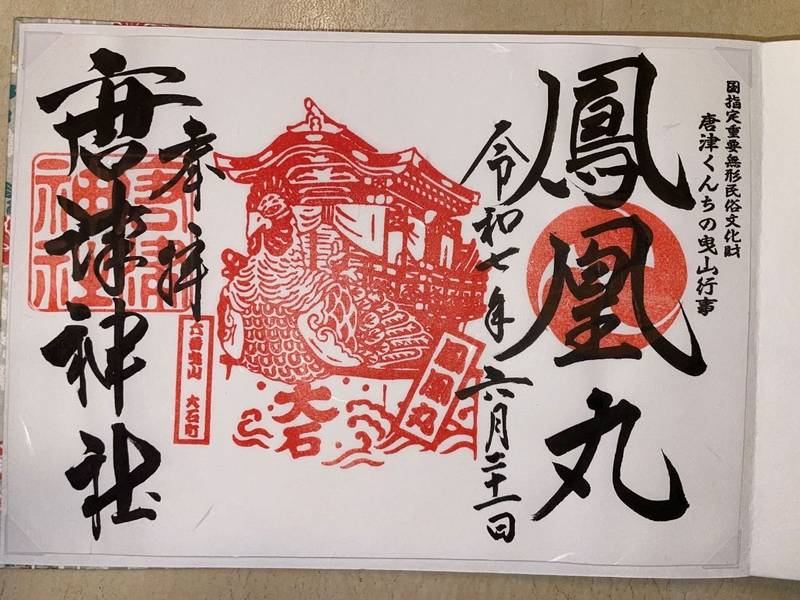 国指定重要無形民俗文化財
唐津くんちの曳山行事
鳳凰丸
令和七年六月二十一日
鳳凰丸
大石
六番曳山 大石町
奉拝
唐津神社
唐津神社